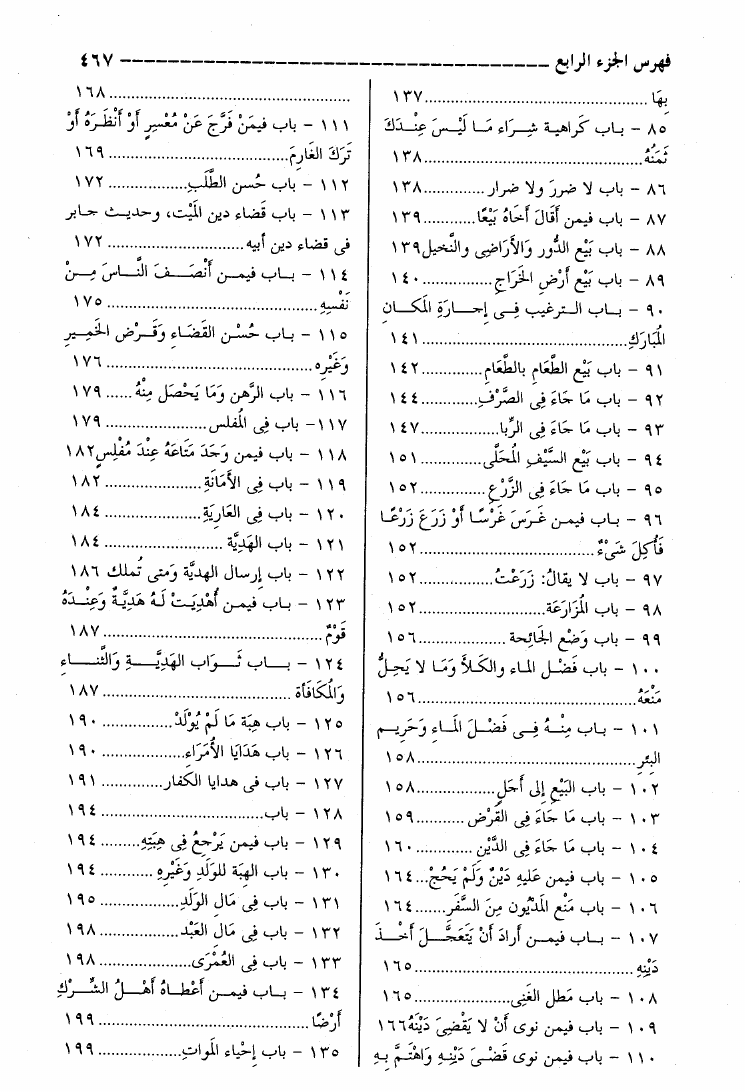 فهرس الجزء الرابع ــــــــــــــــــــــــــــــــــــــــ ٤٦٧
بِهَا .......................................... ١٣٧
٨٥ - بــاب كَرَاهيـة شِـرَاء مَـا لَيْـسَ عِنْـدَكَ
ثَمَنُهُ .......................................... ١٣٨
٨٦ - باب لا ضررَ ولا ضرار .................. ١٣٨
٨٧ - باب فيمن أَقَالَ أَخَاهُ بَيْعًا ............ ١٣٩
٨٨ - باب بَيْع الدُّور وَالأَرَاضِى والنَّخيل ١٣٩
٨٩ - باب بَيْع أَرْضِ الخَرَاجِ .................. ١٤٠
٩٠ - بــاب الـترغيب فِــى إِجــارَةِ المَكـانِ
المُبَارَكِ .......................................... ١٤١
٩١ - باب بَيْع الطَّعَامِ بالطَّعَامِ .............. ١٤٢
٩٢ - باب مَا جَاءَ فِى الصَّرْفِ ................ ١٤٤
٩٣ - باب مَا جَاءَ فِى الرِّبا .................. ١٤٧
٩٤ - باب بَيْع السَّيْفِ المُحَلَّى ................ ١٥١
٩٥ - باب مَا جَاءَ فِى الزَّرْعِ ................ ١٥٢
٩٦ - بـاب فيمـن غَـرَسَ غَرْسًـا أَوْ زَرَعَ زَرْعًـا
فَأُكِلَ شَىْءٌ .................................. ١٥٢
٩٧ - باب لا يقالُ: زَرَعْتُ .................. ١٥٢
٩٨ - باب المُزَارَعَة .......................... ١٥٢
٩٩ - باب وَضْع الجَائحة ...................... ١٥٦
١٠٠ - باب فَضْل الماء والكَلأ وَمَا لا يَحِلُّ
مَنْعَهُ .......................................... ١٥٦
١٠١ - بــاب مِنْـهُ فِــى فَضْـلَ المَـاءِ وَحَرِيــم
البئرِ .......................................... ١٥٨
١٠٢ - باب البَيْعِ إِلى أَجَلٍ .................. ١٥٨
١٠٣ - باب مَا جَاءَ فِى القَرْض .............. ١٥٩
١٠٤ - باب مَا جَاءَ فِى الدَّيْنِ .............. ١٦٠
١٠٥ - باب فيمن عَلَيهِ دَيْنٌ وَلَمْ يَحُجْ ... ١٦٤
١٠٦ - باب مَنْع المَدْيُون مِنَ السَّفَرِ ....... ١٦٤
١٠٧ - بــاب فيمـن أَرادَ أَنْ يَتَعَجَّــلَ أَخْـذَ
دَيْنِهِ .......................................... ١٦٥
١٠٨ - باب مَطل الغَنِى ...................... ١٦٥
١٠٩ - باب فيمن نوى أَنْ لا يَقْضِىَ دَيْنَهُ ١٦٦
١١٠ - باب فيمن نوى قَضْـىَ دَيْنِـهِ وَاهْتَـمَّ بِـهِ
.......................................... ١٦٨
١١١ - باب فيمَن فَرَّجَ عَنْ مُعْسِرٍ أَوْ أَنْظَرَهُ أَوْ
تَرَكَ الغَارِمَ .................................. ١٦٩
١١٢ - باب حُسن الطَّلَبِ .................. ١٧٢
١١٣ - باب قضاء دين المَيْت، وحديث جابر
فى قضاء دين أبيه .......................... ١٧٢
١١٤ - بــاب فيمـن أَنْصَــفَ النَّــاسَ مِــنْ
نَفْسِهِ .......................................... ١٧٥
١١٥ - باب حُسْـن القَضَـاءِ وَقَـرْض الخَمِـيرِ
وَغَيْرِه .......................................... ١٧٦
١١٦ - باب الرَّهن وَمَا يَحْصَل مِنْهُ ...... ١٧٩
١١٧ - باب فى المُفلس ...................... ١٧٩
١١٨ - باب فيمن وَجَدَ مَتَاعَهُ عِنْدَ مُفْلِسٍ ١٨٢
١١٩ - باب فِى الأَمَانَةِ ...................... ١٨٢
١٢٠ - باب فِى العَارِيَةِ ...................... ١٨٤
١٢١ - باب الهَدِيَّة .......................... ١٨٤
١٢٢ - باب إِرسال الهديَّة وَمتى تُملك ١٨٦
١٢٣ - بـاب فيمـن أُهْدِيَـتْ لَـهُ هَدِيَّـةٌ وَعِنْـدَهُ
قَوْمٌ .......................................... ١٨٧
١٢٤ - بـــاب ثَــوَاب الهَدِيَّـــةِ وَالثَّنـــاءِ
وَالمُكَافَأَة .................................. ١٨٧
١٢٥ - باب هِبَة مَا لَمْ يُوْلَدْ .................. ١٩٠
١٢٦ - باب هَدَايَا الأُمَرَاءِ .................. ١٩٠
١٢٧ - باب فى هدايا الكفار .............. ١٩١
١٢٨ - باب .................................. ١٩٤
١٢٩ - باب فيمن يَرْجِعُ فِى هِبَتِهِ ......... ١٩٤
١٣٠ - باب الهِبَة للوَلَدِ وَغَيْرِهِ ............ ١٩٤
١٣١ - باب فِى مَال الوَلَدِ .................. ١٩٥
١٣٢ - باب فِى مَال العَبْد .................. ١٩٨
١٣٣ - باب فِى العُمْرَى ...................... ١٩٨
١٣٤ - بــاب فيمــن أَعْطـاهُ أَهْــلُ الشِّــرْكِ
أَرْضًا .......................................... ١٩٩
١٣٥ - باب إِحْيَاء المَواتِ .................. ١٩٩